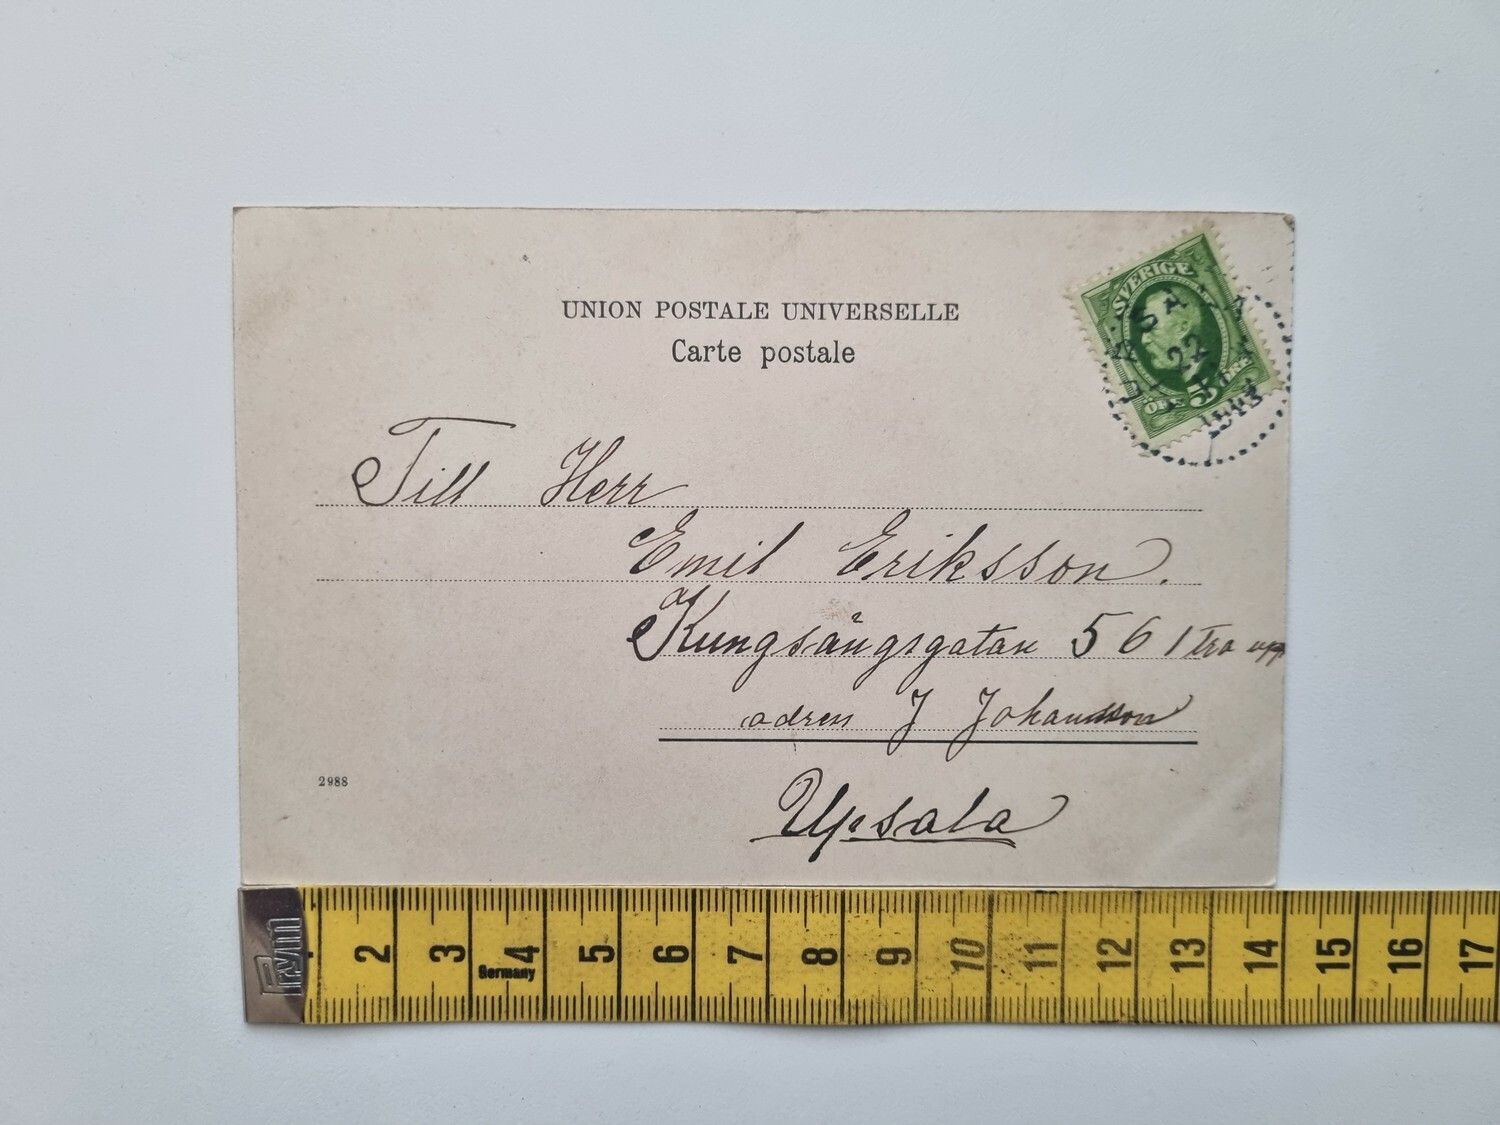 UNION POSTALE UNIVERSELLE
Carte postale
SVERIGE
UPSALA
22
5
ÖRE
Till Herr
Emil Eriksson.
Kungsängsgatan 56 1 tra upp
adress J Johansson
Upsala
2988
Prym
2 3 4 5 6 7 8 9 10 11 12 13 14 15 16 17
Germany